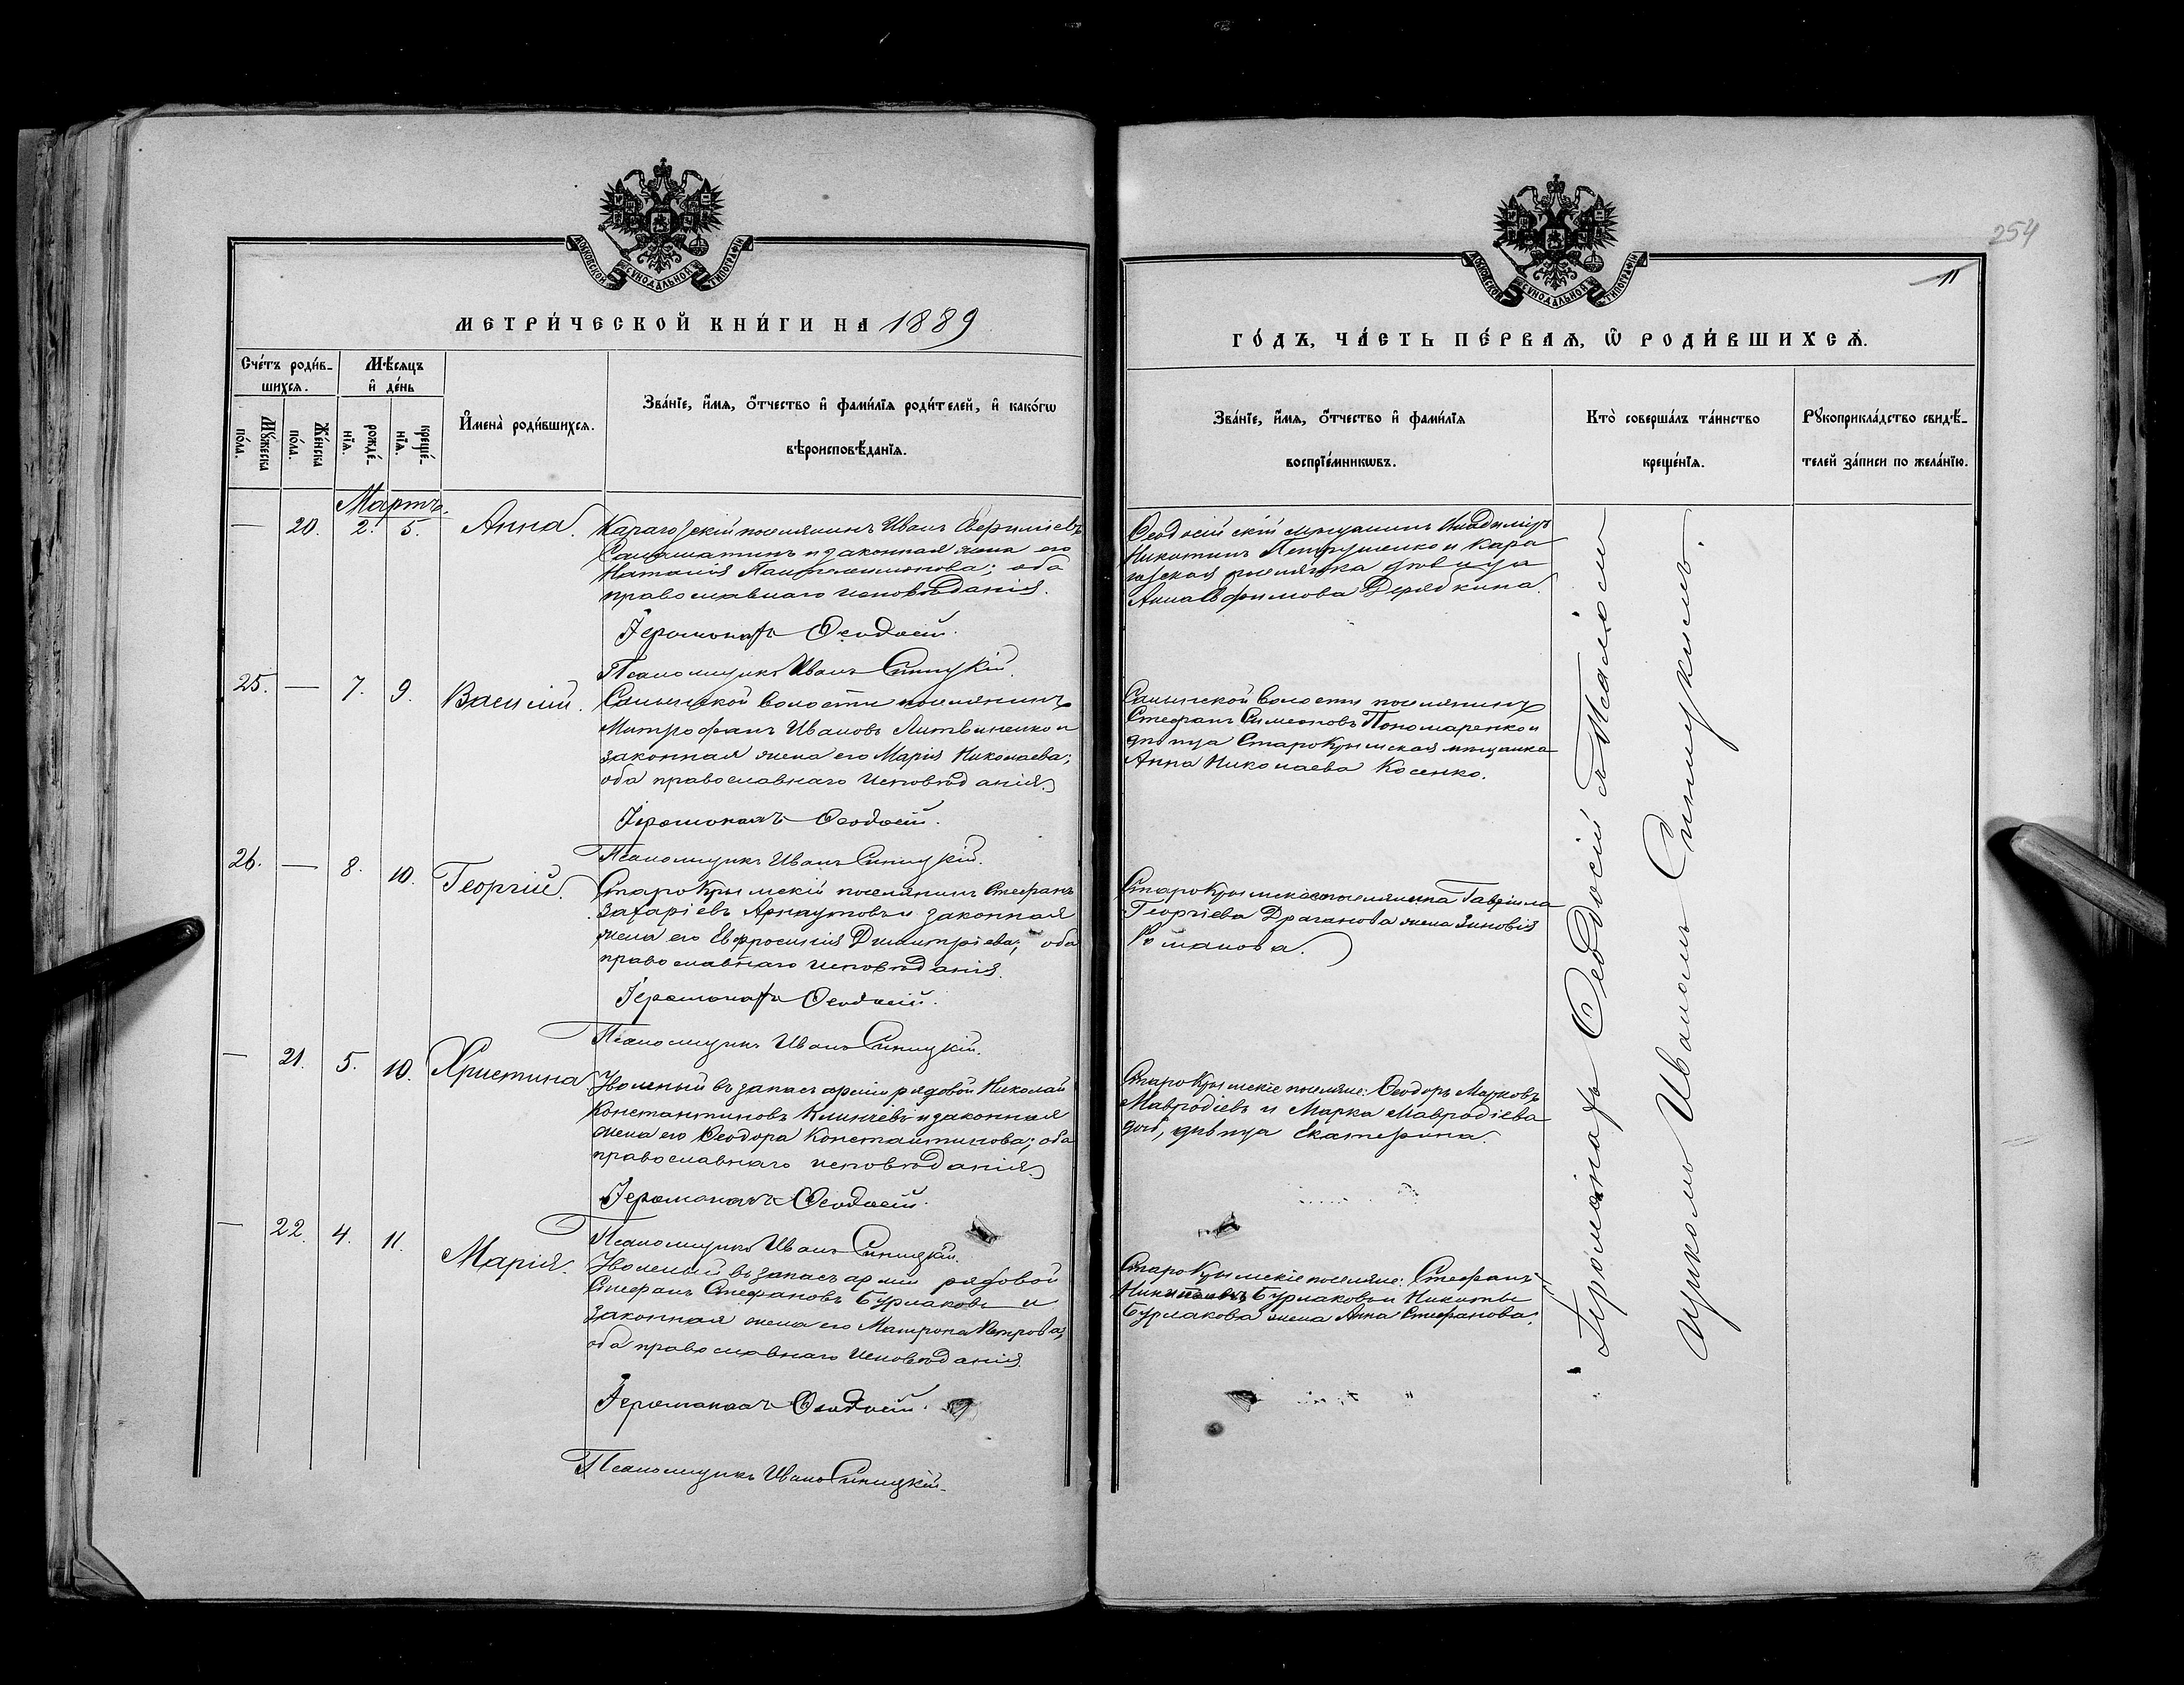 МОСКОВСКОЙ СѴНОДАЛЬНОЙ ТИПОГРАФІИ
МЕТРИ́ЧЕСКОЙ КНИ́ГИ НА 1889
Сче́тъ роди́в-
шихсѧ.
Мѣ́сѧцъ
и҆ де́нь
Мꙋ́жеска
по́ла.
Же́нска
по́ла.
рожде́-
нїѧ.
креще́-
нїѧ.
И҆мена̀ роди́вшихсѧ.
Зва́нїе, и҆́мѧ, ѻ҆́тчество и҆ фами́лїѧ роди́телей, и҆ како́гѡ
вѣроисповѣ́данїѧ.
Мартъ.
— 20. 2. 5. Анна.
Карагозскій поселянинъ Иванъ
и законная жена его
Наталія Пантелеимонова; оба
православнаго исповѣданія.
Іеромонахъ Ѳеодосій.
Псаломщикъ Иванъ Синицкій.
25. — 7. 9. Василій.
волости поселянинъ
Митрофанъ Ивановъ Литвиненко и
законная жена его Марія Николаева;
оба православнаго исповѣданія.
Іеромонахъ Ѳеодосій.
Псаломщикъ Иванъ Синицкій.
26. — 8. 10. Георгій.
Старокрымскій поселянинъ Стефанъ
Захаріевъ Арнаутовъ и законная
жена его Евфросинія Димитріева; оба
православнаго исповѣданія.
Іеромонахъ Ѳеодосій.
Псаломщикъ Иванъ Синицкій.
— 21. 5. 10. Христина
Уволеный въ запасъ арміи рядовой Николай
Константиновъ и законная
жена его Ѳеодора Константинова; оба
православнаго исповѣданія.
Іеромонахъ Ѳеодосій.
Псаломщикъ Иванъ Синицкій.
— 22. 4. 11. Марія.
Уволеный въ запасъ арміи рядовой
Стефанъ Стефановъ Бурлаковъ и
законная жена его Матрона Петрова;
оба православнаго исповѣданія.
Іеромонахъ Ѳеодосій.
Псаломщикъ Иванъ Синицкій.
254
11
МОСКОВСКОЙ СѴНОДАЛЬНОЙ ТИПОГРАФІИ
ГО́ДЪ, ЧА́СТЬ ПЕ́РВАѦ, Ѡ҆ РОДИ́ВШИХСѦ.
Зва́нїе, и҆́мѧ, ѻ҆́тчество и҆ фами́лїѧ
воспрїе́мникѡвъ.
Кто̀ соверша́лъ та́инство
креще́нїѧ.
Рꙋкоприкла́дство свидѣ́-
телей за́писи по жела́нїю.
Ѳеодосійскій мѣщанинъ Владиміръ
Никитинъ Петрушенко и Кара
гозская поселянка дѣвица
Анна Ефимова Дерябкина.
волости поселянинъ
Стефанъ Симеоновъ Пономаренко и
дѣвица Старокрымская мѣщанка
Анна Николаева Косенко.
Гавріила
Георгіева Драганова жена Зиновія
Романова.
Старокрымскіе поселяне: Ѳеодоръ Марковъ
Мавродіевъ и Марка Мавродіева
дочь, дѣвица Екатерина.
Старокрымскіе поселяне: Стефанъ
Бурлаковъ и Никиты
Бурлакова жена Анна Стефанова.
Іеромонахъ Ѳеодосій съ Псалом
щикомъ Иваномъ Синицкимъ.